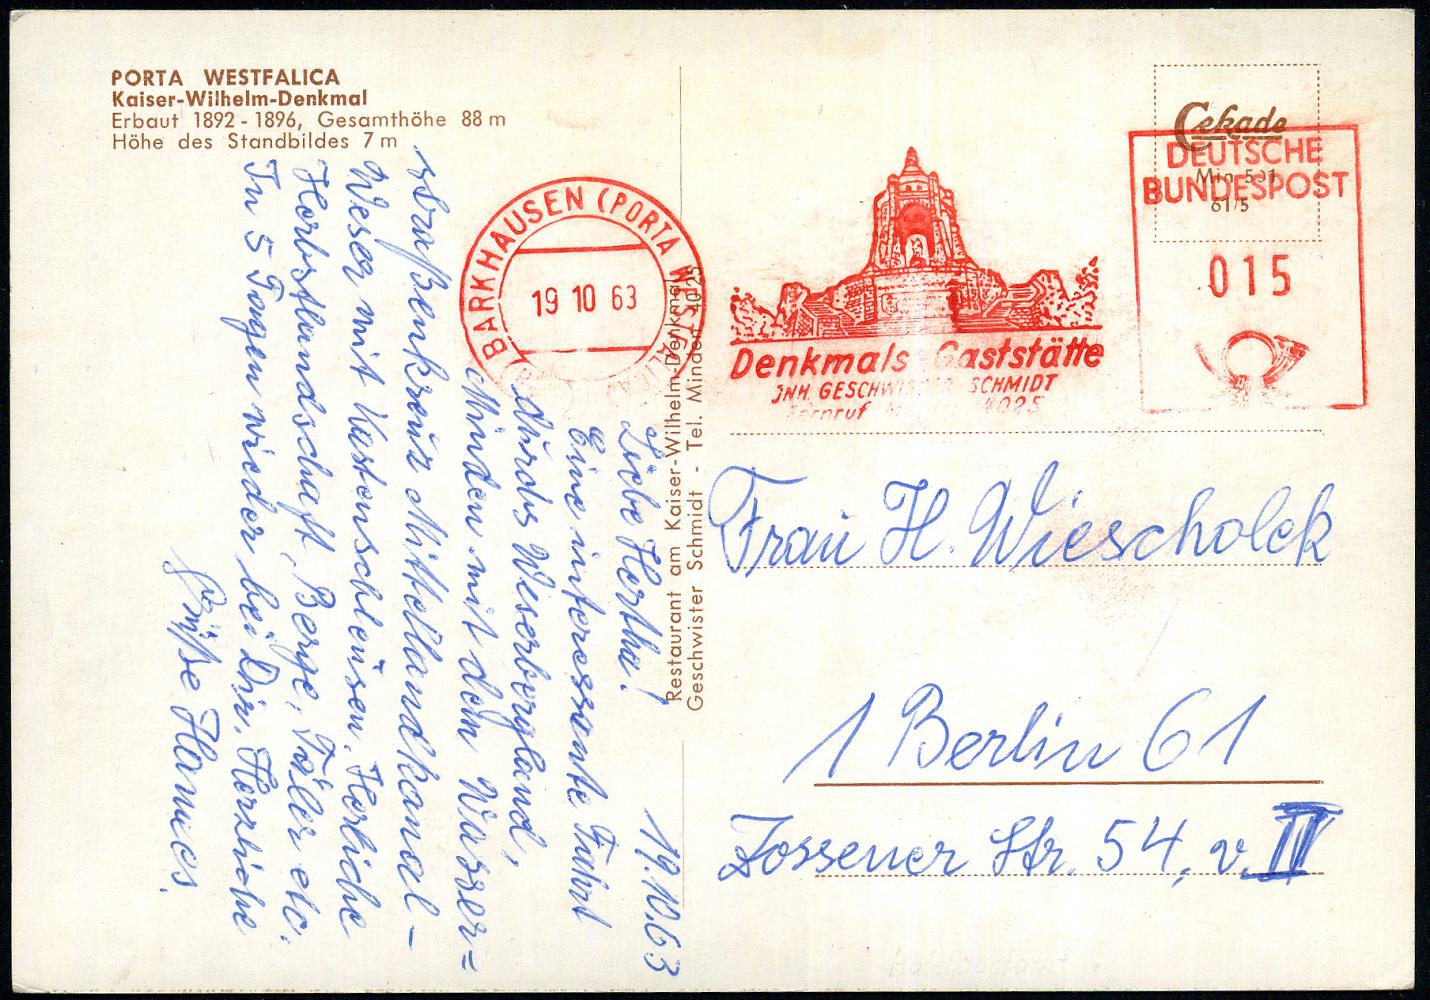 PORTA WESTFALICA
Kaiser-Wilhelm-Denkmal
Erbaut 1892 - 1896, Gesamthöhe 88 m
Höhe des Standbildes 7 m
BARKHAUSEN (PORTA WESTFALICA)
19 10 63
Denkmals-Gaststätte
JNH. GESCHWISTER SCHMIDT
Fernruf 4025
Cekade
Min 591
61/5
DEUTSCHE
BUNDESPOST
015
Restaurant am Kaiser-Wilhelm-Denkmal
Geschwister Schmidt - Tel. Minden 4025
19.10.63
Liebe Hertha!
Eine interessante Fahrt
durchs Weserbergland,
Minden mit dem Wasser=
straßenkreuz Mittellandkanal -
Weser mit Kastenschleusen. Herrliche
Herbstlandschaft, Berge, Täler etc.
In 5 Tagen wieder bei Dir. Herzliche
Grüße Hannes.
Frau H. Wiescholek
1 Berlin 61
Zossener Str. 54, v. IV